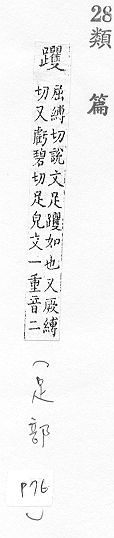 28
類篇
躩
屈縛切說文足躩如也又厥縛
切又虧碧切足皃文一重音二
(足部
P76
)